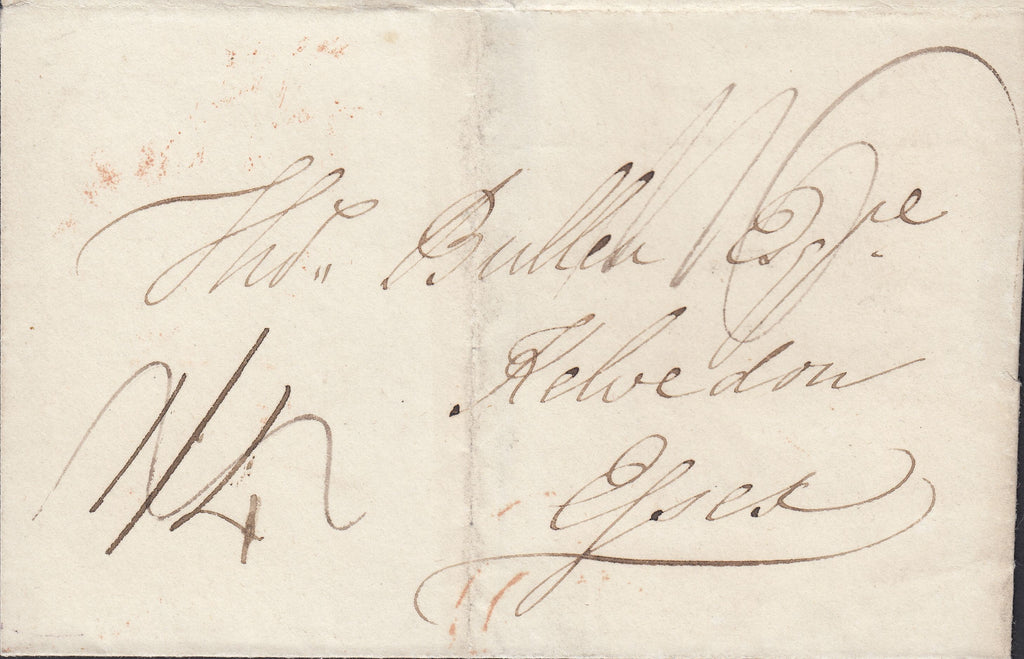 Thos. Bullen Esqre.
Kelvedon
Essex
1/4